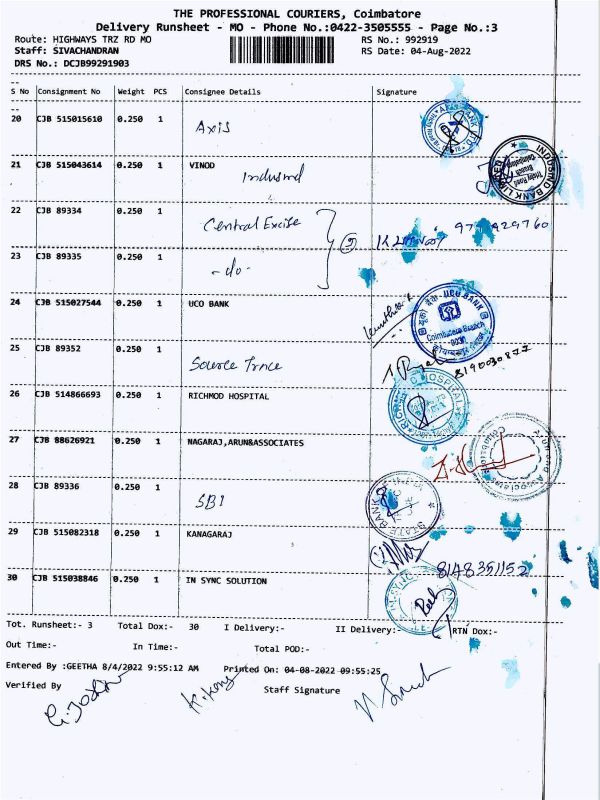 THE PROFESSIONAL COURIERS, Coimbatore
Delivery Runsheet - MO - Phone No.:0422-3505555 - Page No.:3
Route: HIGHWAYS TRZ RD MO RS No.: 992919
Staff: SIVACHANDRAN RS Date: 04-Aug-2022
DRS No.: DCJB99291903
S No Consignment No Weight PCS Consignee Details Signature
20 CJB 515015610 0.250 1 Axis
21 CJB 515043614 0.250 1 VINOD
Indusind
INDUSIND BANK LIMITED
22 CJB 89334 0.250 1 Central Excise
23 CJB 89335 0.250 1 -do-
24 CJB 515027544 0.250 1 UCO BANK
UCO BANK
Coimbatore Branch
25 CJB 89352 0.250 1 Source Trace
8190030877
26 CJB 514866693 0.250 1 RICHMOD HOSPITAL
HOSPITAL
27 CJB 88626921 0.250 1 NAGARAJ,ARUN&ASSOCIATES
28 CJB 89336 0.250 1 SBI
STATE BANK OF INDIA
29 CJB 515082318 0.250 1 KANAGARAJ
8148351152
30 CJB 515038846 0.250 1 IN SYNC SOLUTION
Tot. Runsheet:- 3 Total Dox:- 30 I Delivery:- II Delivery:- RTN Dox:-
Out Time:- In Time:- Total POD:-
Entered By :GEETHA 8/4/2022 9:55:12 AM Printed On: 04-08-2022 09:55:25
Verified By Staff Signature